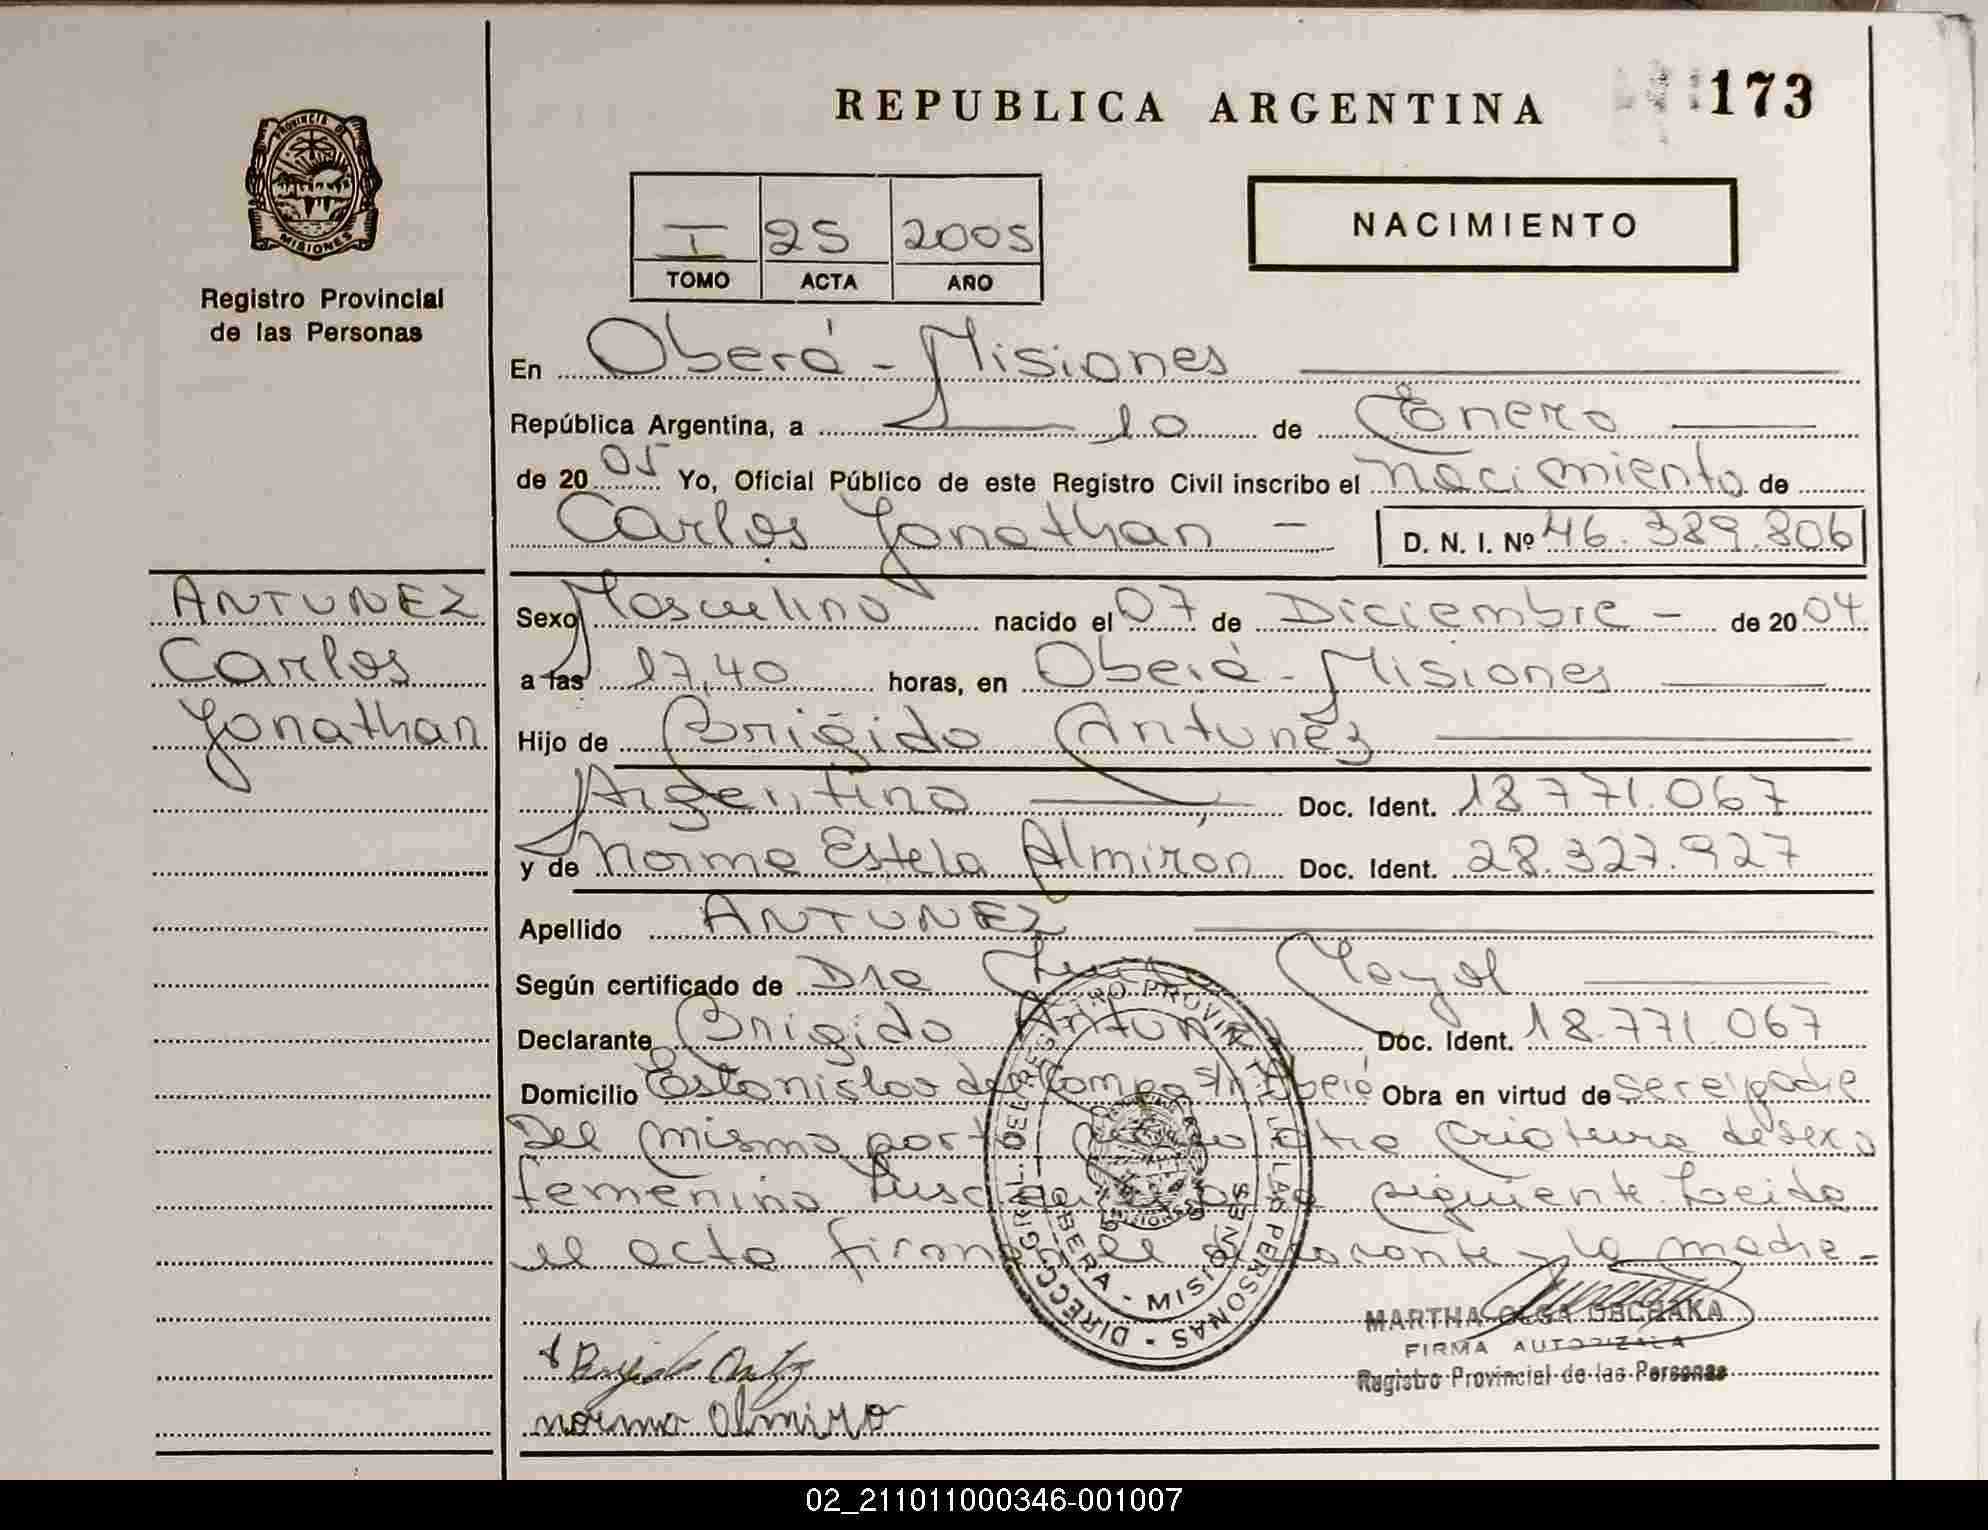 REPUBLICA ARGENTINA
173
PROVINCIA DE
MISIONES
Registro Provincial
de las Personas
I 25 2005
TOMO ACTA AÑO
NACIMIENTO
En Oberá - Misiones
República Argentina, a 10 de Enero
de 2005 Yo, Oficial Público de este Registro Civil inscribo el nacimiento de
Carlos Jonathan - D. N. I. Nº 46.389.806
ANTUNEZ
Carlos
Jonathan
Sexo Masculino nacido el 07 de Diciembre - de 2004
a las 17,40 horas, en Oberá - Misiones
Hijo de Brígido Antunez
Argentino Doc. Ident. 18.771.067
y de Norma Estela Almirón Doc. Ident. 28.327.927
Apellido ANTUNEZ
Según certificado de Dra
Declarante Brigido Antunez Doc. Ident. 18.771.067
Domicilio Estanislao del Campo s/n Oberá Obra en virtud de ser el padre
Del mismo parto otra criatura de sexo
femenino siguiente. Leida
el acta firman el declarante y la madre -
DIRECC. GRAL. DEL REGISTRO PROVINCIAL DE LAS PERSONAS -
OBERA - MISIONES
MARTHA OLGA OBCHAKA
FIRMA AUTORIZADA
Registro Provincial de las Personas
norma Almiro
02_211011000346-001007